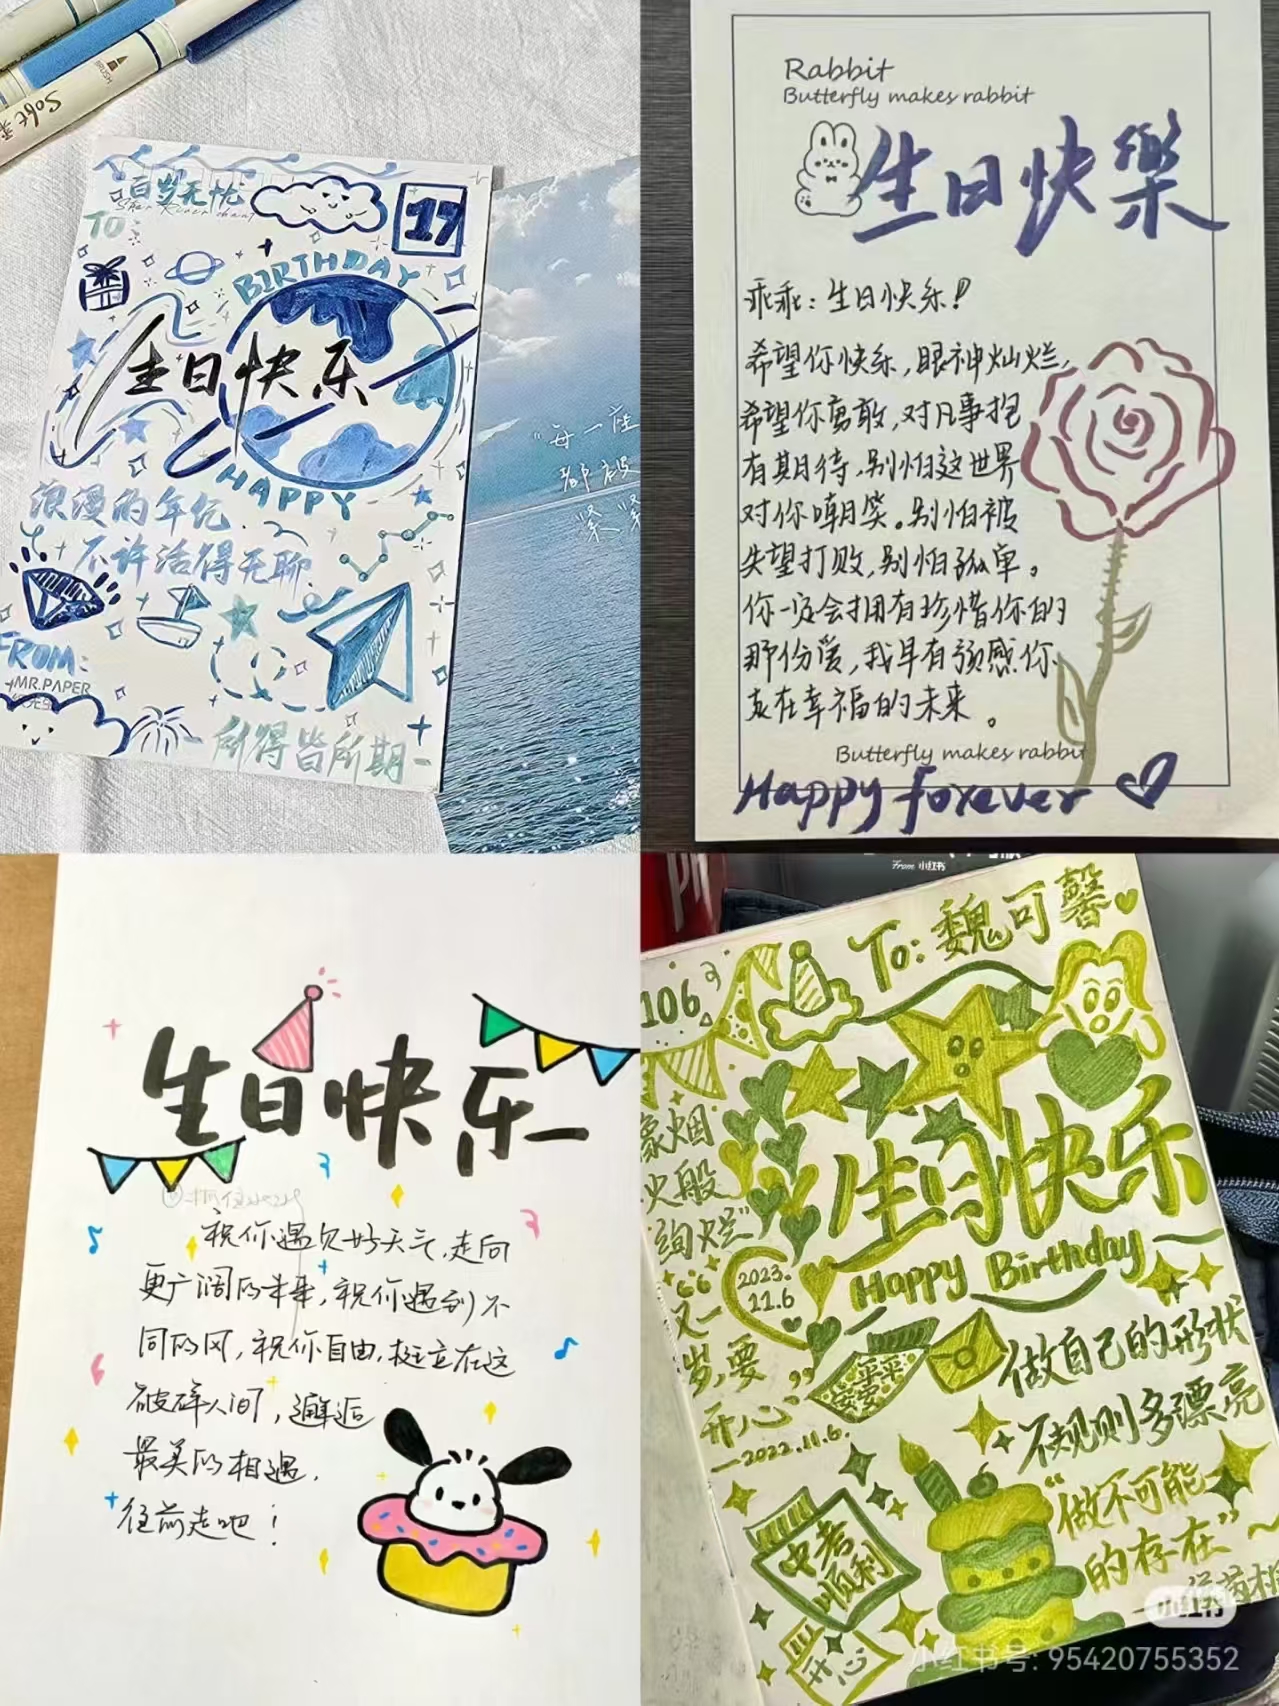 Soft
百岁无忧
TO:
17
BIRTHDAY
生日快乐
HAPPY
浪漫的年纪
不许活得无聊
FROM:
MR.PAPER
所得皆所期
"每一座
都被
紧紧
Rabbit
Butterfly makes rabbit
生日快樂
乖乖：生日快乐！
希望你快乐，眼神灿烂，
希望你勇敢，对凡事抱
有期待，别怕这世界
对你嘲笑。别怕被
失望打败，别怕孤单。
你一定会拥有珍惜你的
那份爱，我早有预感你
走在幸福的未来。
Butterfly makes rabbit
Happy forever
生日快乐
祝你遇见好天气，走向
更广阔的未来，祝你遇到不
同的风，祝你自由，挺立在这
破碎人间，邂逅
最美的相遇，
往前走吧！
From 小红书
To：魏可馨
106
象烟
火般
绚烂"
生日快乐
Happy Birthday
2023.
11.6
"又一
岁，要
开心"
—2022.11.6.
平平
安安
做自己的形状
不规则多漂亮
"做不可能
的存在"
中考
顺利
开心
小红书
小红书号：95420755352